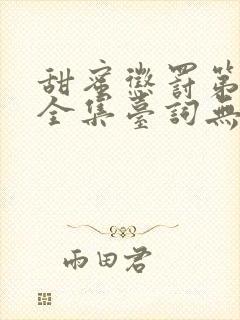 甜蜜懲罰第
全集臺詞無
雨田君